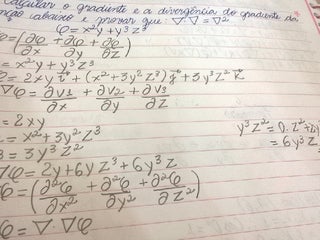 calcular o gradiente e a divergência do gradiente da
função abaixo e provar que ∇·∇ = ∇²
φ = x²y + y³z³
φ = (∂φ/∂x + ∂φ/∂y + ∂φ/∂z)
= x²y + y³z³
= 2xy i + (x² + 3y²z³) j + 3y³z² k
∇φ = ∂v1/∂x + ∂v2/∂y + ∂v3/∂z
= 2xy
= x² + 3y²z³
3 = 3y³z²
y³z² = 0.z² +
= 6y³z
∇φ = 2y + 6yz³ + 6y³z
φ = (∂²φ/∂x² + ∂²φ/∂y² + ∂²φ/∂z²)
φ = ∇·∇φ